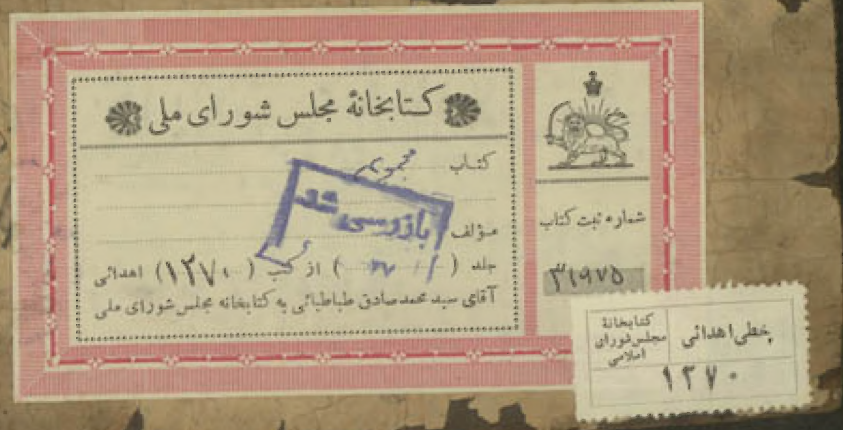 کتابخانهٔ مجلس شورای ملی
کتاب مجموعه
مؤلف
بازرسی شد
جلد ( ) از کتب (۱۲۷۰) اهدائی
آقای سید محمدصادق طباطبائی به کتابخانه مجلس شورای ملی
شماره ثبت کتاب
۳۱۹۷۵
خطی اهدائی
کتابخانهٔ
مجلس شورای
اسلامی
۱۲۷۰